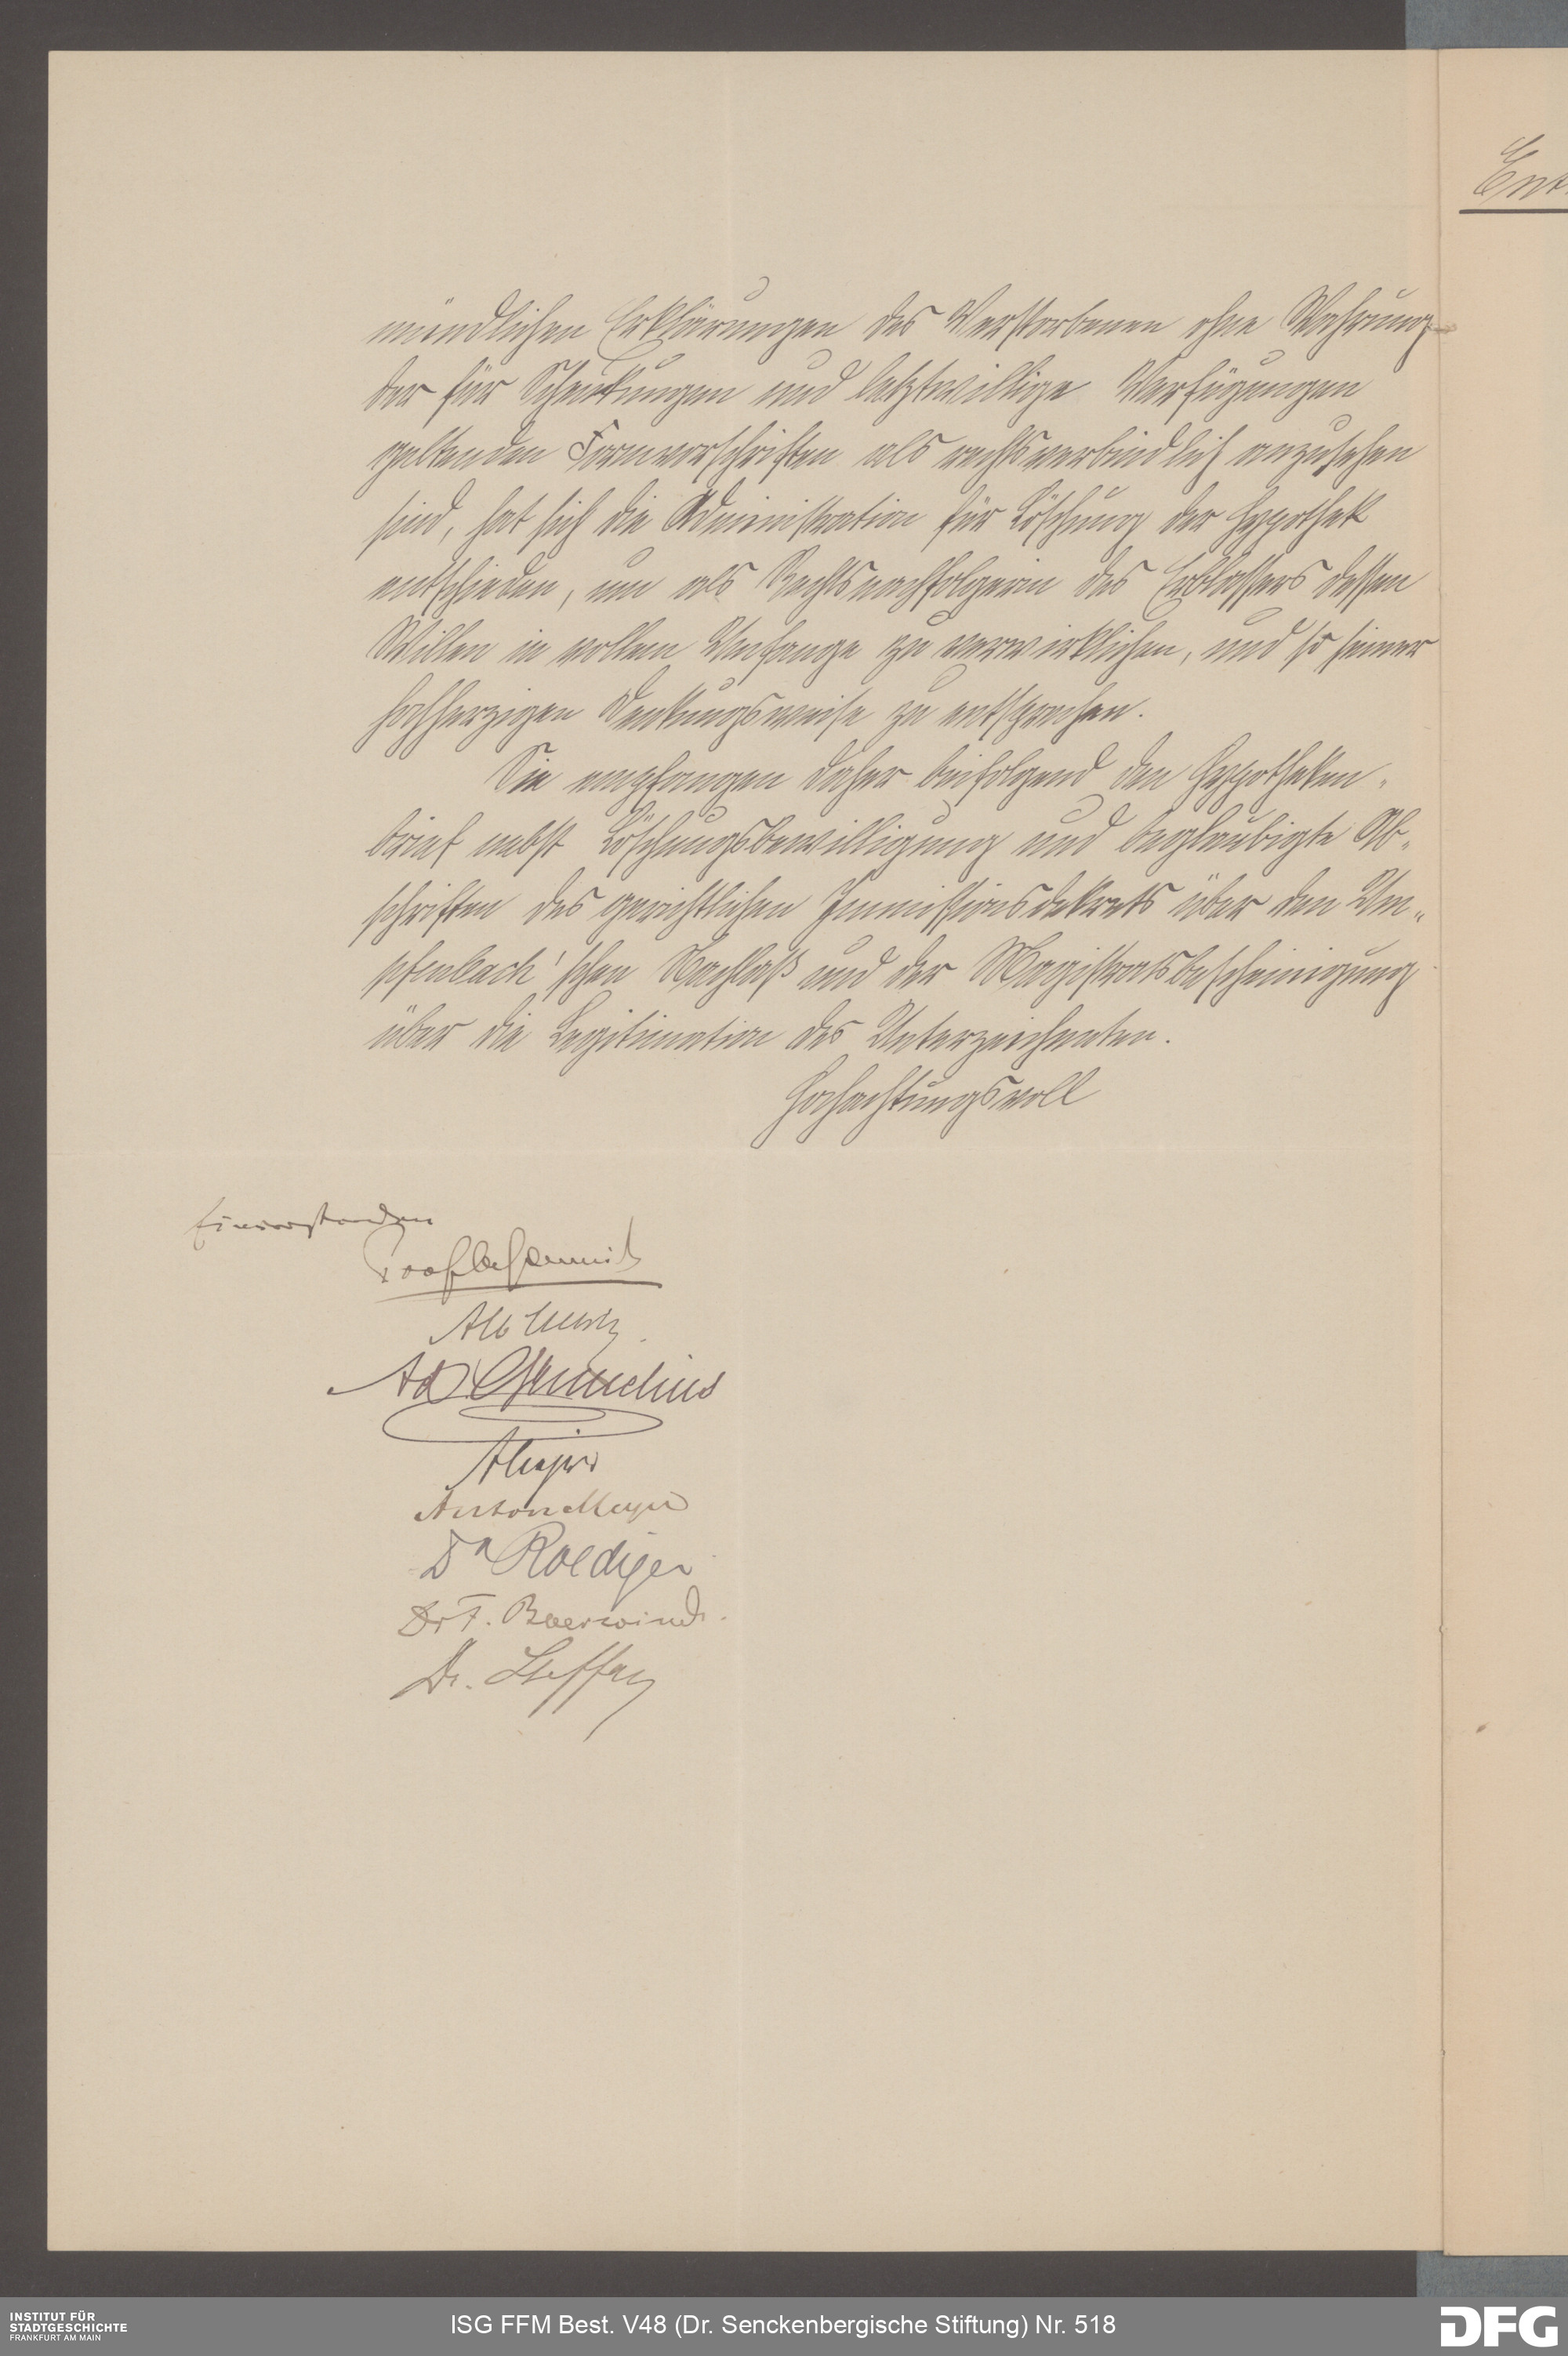 mündlichen Erklärungen des Verstorbenen ohne Wahrung
der für Schenkungen und letztwillige Verfügungen
geltenden Formvorschriften als rechtsverbindlich anzusehen
sind, hat sich die Administration für Löschung der Hypothek
entschieden, um als Rechtsnachfolgerin des Erblassers dessen
Willen in vollem Umfange zu verwirklichen, und so seiner
hochherzigen Denkungsweise zu entsprechen.
Sie empfangen daher beifolgend den Hypotheken-
brief nebst Löschungsbewilligung und beglaubigte Ab-
schriften des gerichtlichen Immissionsdekrets über den Um-
pfenbach'schen Nachlaß und der Magistratsbescheinigung
über die Legitimation des Unterzeichneten.
Hochachtungsvoll
Einverstanden
Ad
Anton Meyer
Dr Roediger
Dr F. Baerwindt.
Dr. Steffan
Ent
INSTITUT FÜR
STADTGESCHICHTE
FRANKFURT AM MAIN
ISG FFM Best. V48 (Dr. Senckenbergische Stiftung) Nr. 518
DFG